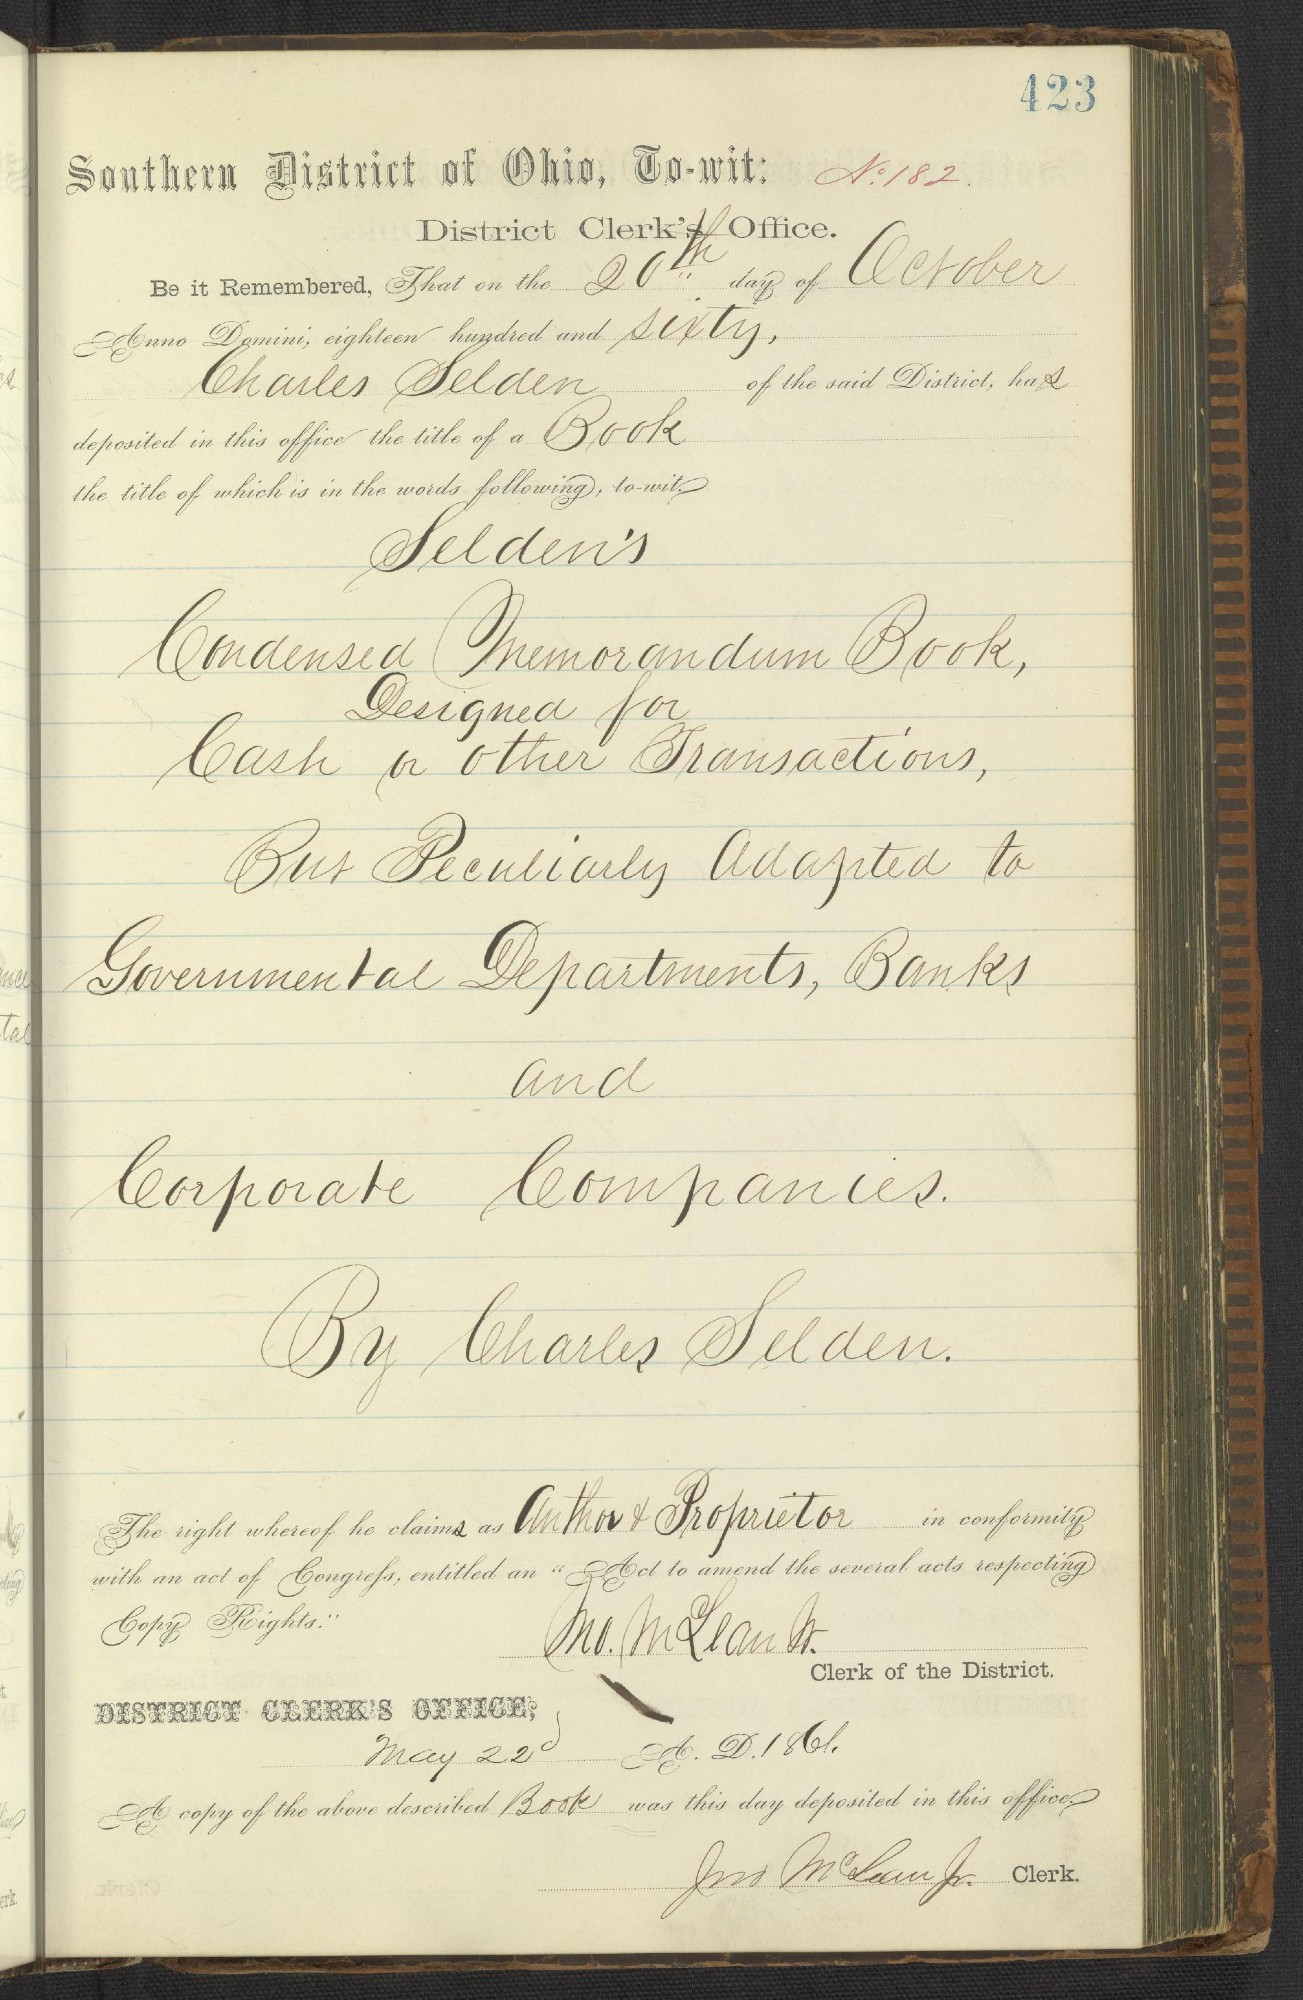 423
Southern District of Ohio, To-wit: No. 182.
District Clerk's Office.
Be it Remembered, That on the 20th day of October
Anno Domini, eighteen hundred and sixty,
Charles Selden of the said District, has
deposited in this office the title of a Book
the title of which is in the words following, to-wit:
Selden's
Condensed Memorandum Book,
Designed for
Cash or other Transactions,
But Peculiarly Adapted to
Governmental Departments, Banks
and
Corporate Companies.
By Charles Selden.
The right whereof he claims as Author & Proprietor in conformity
with an act of Congress, entitled an "Act to amend the several acts respecting
Copy Rights."
Jno. McLean Jr.
Clerk of the District.
DISTRICT CLERK'S OFFICE,
May 22d A. D. 1861.
A copy of the above described Book was this day deposited in this office,
Jno McLean Jr. Clerk.